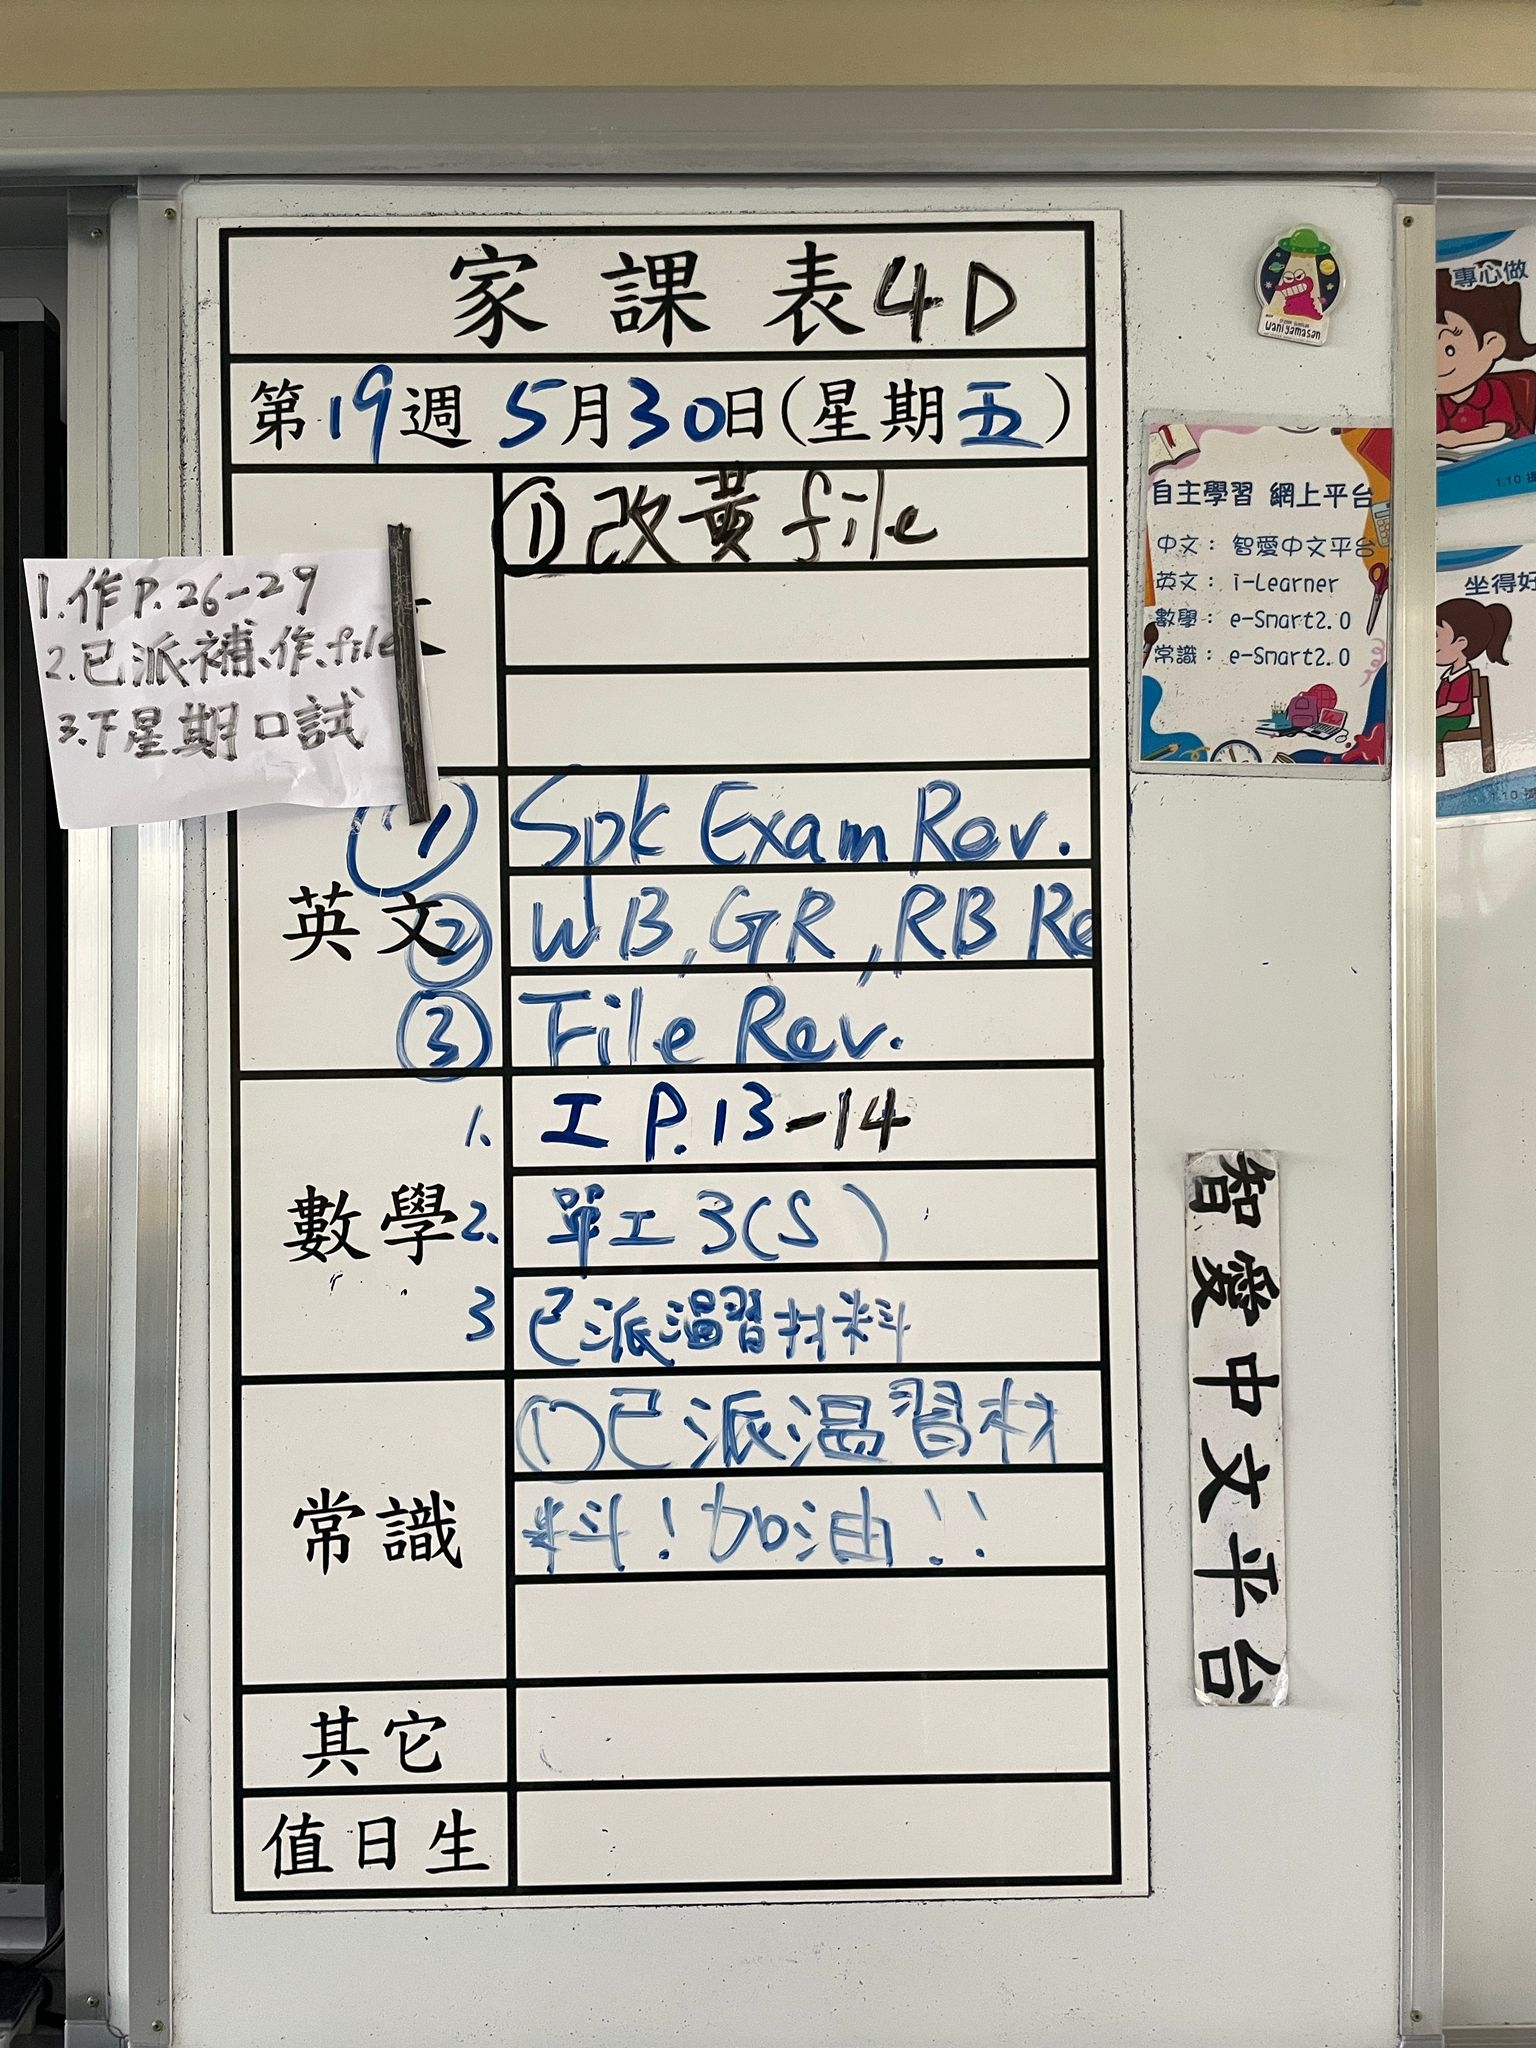 家課表4D
第19週 5月30日(星期五)
①改黃file
1.作P.26-29
2.已派補、作、file
3.下星期口試
英文
① Spk Exam Rev.
② WB, GR, RB Re
③ File Rev.
數學
1. 工 P.13-14
2. 單工3(S)
3 已派溫習材料
常識
①已派溫習材
料!加油!!
其它
值日生
wani yamasan
自主學習 網上平台
中文: 智愛中文平台
英文: i-Learner
數學: e-Smart2.0
常識: e-Smart2.0
智愛中文平台
專心做
1.10
坐得好
1.10